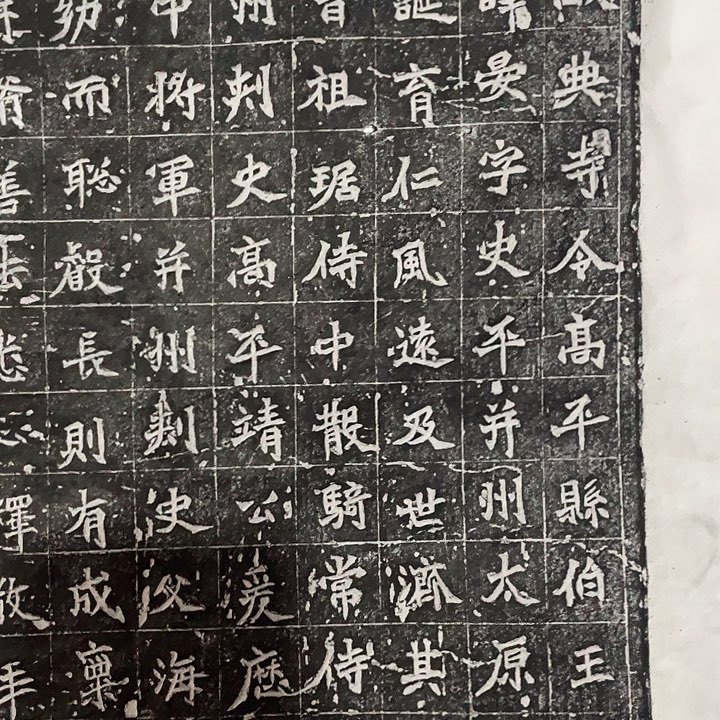 典寺令高平縣伯王
晏字史平并州太原
誕育仁風遠及世濟其
祖琚侍中散騎常侍
州刺史高平靖公爰歷
中將軍并州刺史父海
幼而聡叡長則有成稟
善